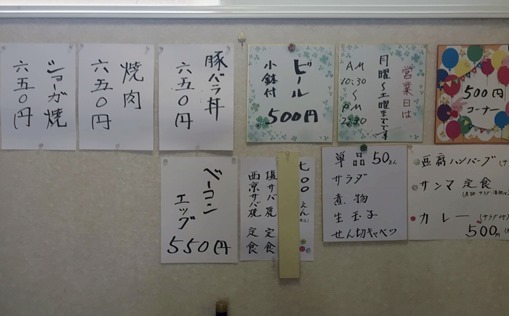 ショーガ焼
六五〇円
焼肉
六五〇円
豚バラ丼
六五〇円
ビール
小鉢付
500円
営業日は
月曜〜土曜までです
AM
10:30
〜
PM
500円
コーナー
ベーコン
エッグ
550円
七〇〇えん
塩サバ焼定食
西京サバ焼定食
単品50えん
サラダ
煮物
生玉子
せん切キャベツ
ハンバーグ
サンマ定食
カレー
500円